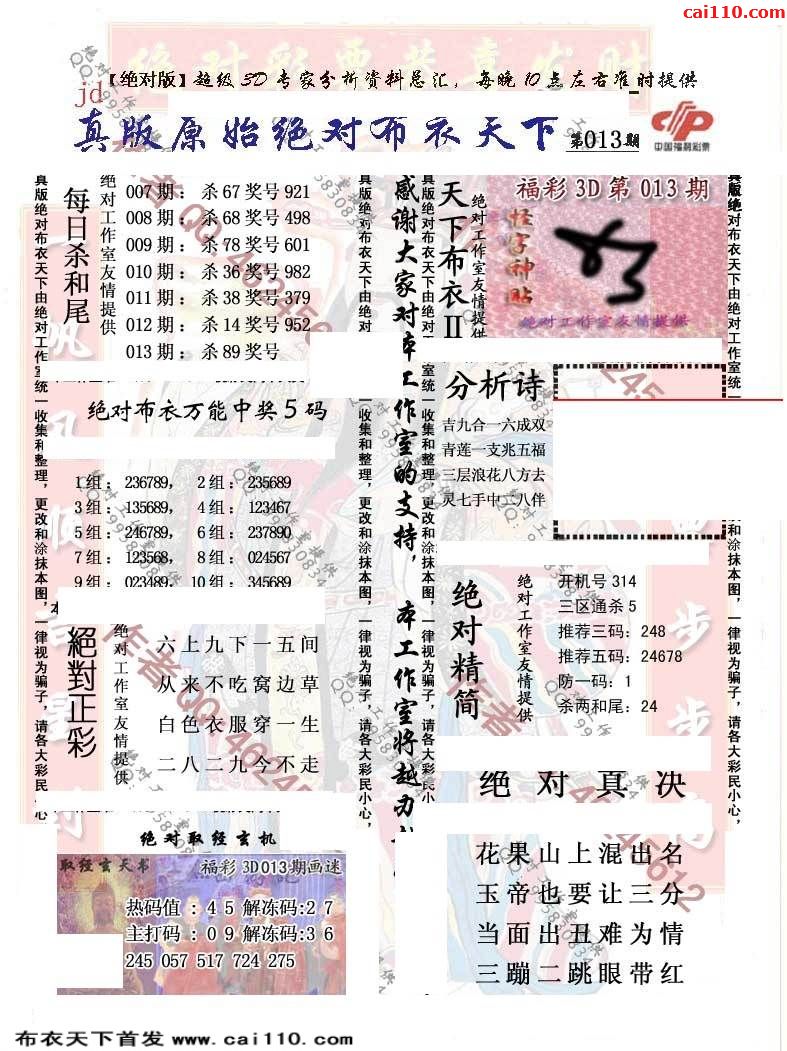 cai110.com
【绝对版】超级3D专家分析资料总汇，每晚10点左右准时提供
jd
真版原始绝对布衣天下 第013期
中国福利彩票
每日杀和尾
绝对工作室友情提供
007期：杀67奖号921
008期：杀68奖号498
009期：杀78奖号601
010期：杀36奖号982
011期：杀38奖号379
012期：杀14奖号952
013期：杀89奖号
天下布衣II
绝对工作室友情提供
福彩3D第013期
怪字神贴
绝对工作室友情提供
感谢大家对本工作室的支持，本工作室将越办
真版绝对布衣天下由绝对
室统一收集和整理，更改和涂抹本图，一律视为骗子，请各大彩民小心，
绝对布衣万能中奖5码
1组：236789，2组：235689
3组：135689，4组：123467
5组：246789，6组：237890
7组：123568，8组：024567
9组：023489，10组：345689
分析诗
吉九合一六成双
青莲一支兆五福
三层浪花八方去
灵七手中二八伴
絕對正彩
绝对工作室友情提供
六上九下一五间
从来不吃窝边草
白色衣服穿一生
二八二九今不走
绝对精简
绝对工作室友情提供
开机号314
三区通杀5
推荐三码：248
推荐五码：24678
防一码：1
杀两和尾：24
绝对真决
花果山上混出名
玉帝也要让三分
当面出丑难为情
三蹦二跳眼带红
绝对取经玄机
取经玄天书
福彩3D013期画迷
热码值：45解冻码:27
主打码：09解冻码:36
245 057 517 724 275
布衣天下首发 www.cai110.com